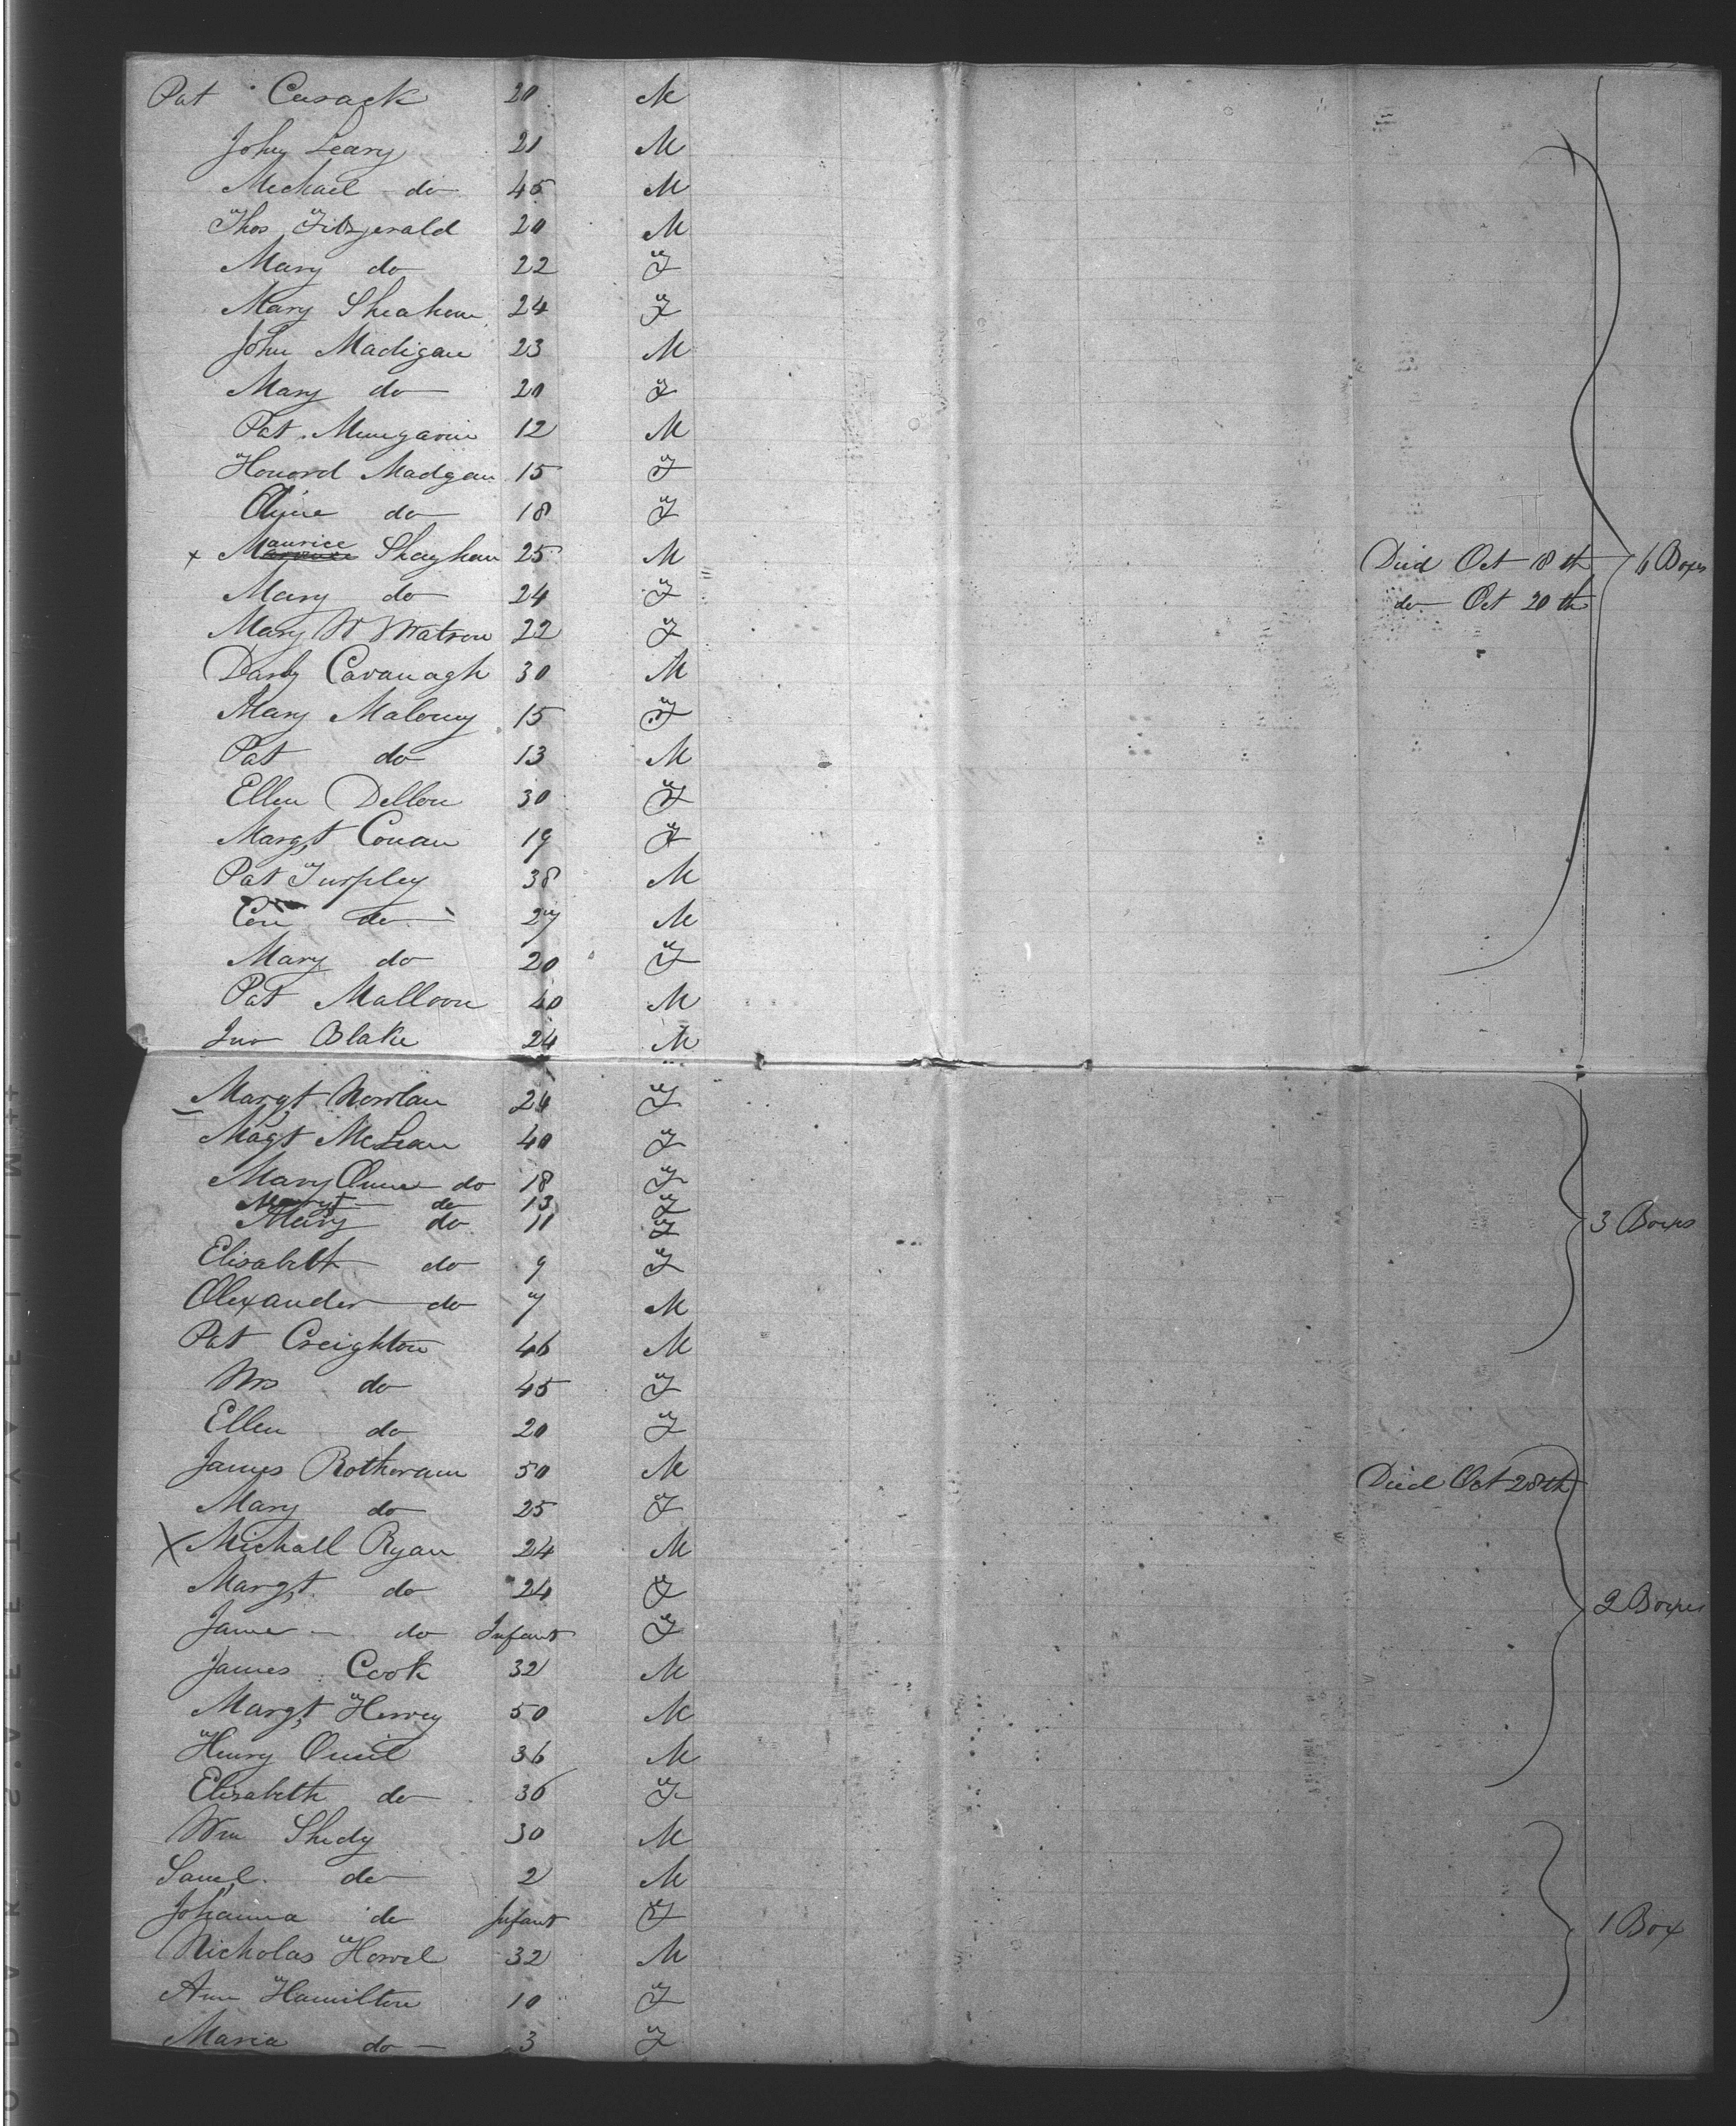 Pat Cusack 20 M
John Leary 21 M
Michael do 45 M
Thos Fitzgerald 20 M
Mary do 22 F
Mary Sheahan 24 F
John Madigan 23 M
Mary do 20 F
Pat Mungavin 12 M
Honord Madgan 15 F
do 18 F
x Maurice Shaughan 25 M Died Oct 18th 6 Boxes
Mary do 24 F do Oct 20th
Mary W Watson 22 F
Darby Cavanagh 30 M
Mary Malouny 15 F
Pat do 13 M
Ellen Dellon 30 F
Margt Conan 19 F
Pat Turpley 38 M
Con do 27 M
Mary do 20 F
Pat Malloon 40 M
Jno Blake 24 M
Margt Nowlan 24 F
Magt McLean 40 F
Mary Anne do 18 F
Margt do 13 F
Mary do 11 F 3 Boxes
Elisabeth do 9 F
Alexander do 7 M
Pat Creighton 46 M
Mrs do 45 F
Ellen do 20 F
James Rotheram 50 M Died Oct 28th
Mary do 25 F
X Michall Ryan 24 M
Margt do 24 F
Jane do Infant F 2 Boxes
James Cook 32 M
Margt Hervey 50 M
Henry Oneil 36 M
Elisabeth do 36 F
Wm Shedy 30 M
Saml do 2 M
Johanna do Infant F 1 Box
Nicholas Howel 32 M
Ann Hamilton 10 F
Maria do 3 F